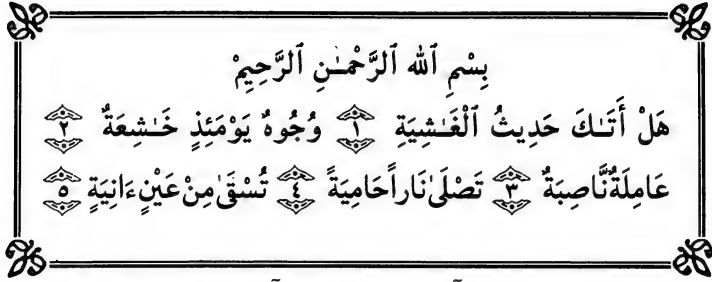 بِسْمِ ٱللَّه ٱلرَّحْمَـٰنِ ٱلرَّحِيمِْ
هَلْ أَتَـٰكَ حَدِيثُ ٱلْغَـٰشِيَةِ ١ وُجُوهٌ يَوْمَئِذٍ خَـٰشِعَةٌ ٢
عَامِلَةٌنَّاصِبَةٌ ٣ تَصْلَىٰ نَاراًحَامِيَةً ٤ تُسْقَىٰ مِنْ عَيْنٍ ءَانِيَةٍ ٥